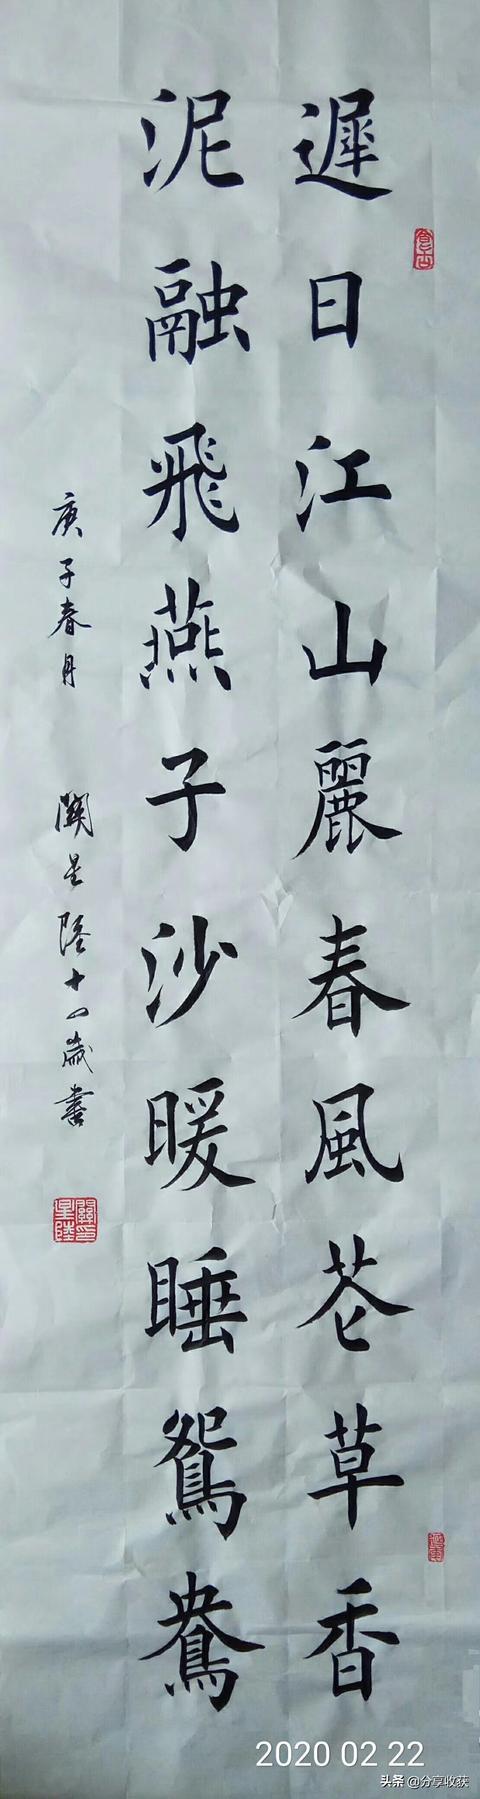 遲日江山麗春風花草香
泥融飛燕子沙暖睡鴛鴦
庚子春月 關星陸十一歲書
關星陸印
2020 02 22
头条 @分享收获